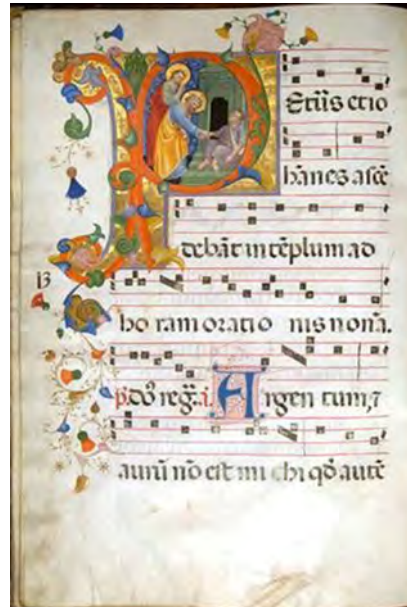 P Etrus et io
hānes ascē
debāt in tēplum ad
ho ram oratio nis nonā.
p̄. dō reg̃. i. A rgen tum, ⁊
aurū nō est mi chi qđ autē